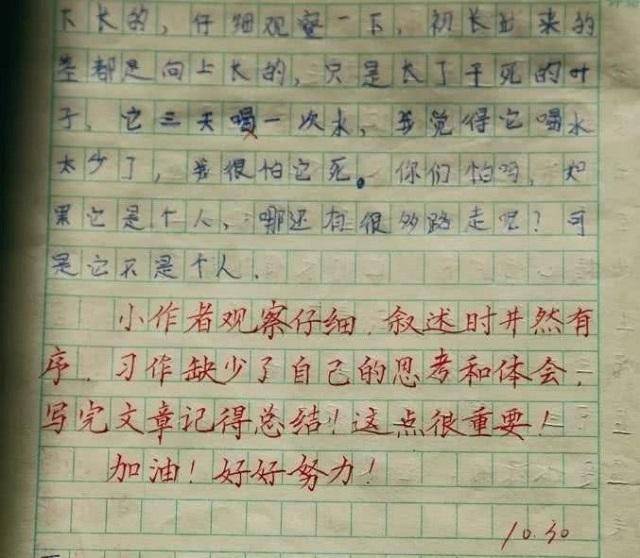 下长的，仔细观察一下，初长出来的
茎都是向上长的，只是长了干死的叶
子，它三天喝一次水，我觉得它喝水
太少了，我很怕它死。你们怕吗，如
果它是个人，哪还有很多路走呢？可
是它不是个人．
小作者观察仔细，叙述时井然有
序．习作缺少了自己的思考和体会，
写完文章记得总结！这点很重要！
加油！好好努力！
10.30